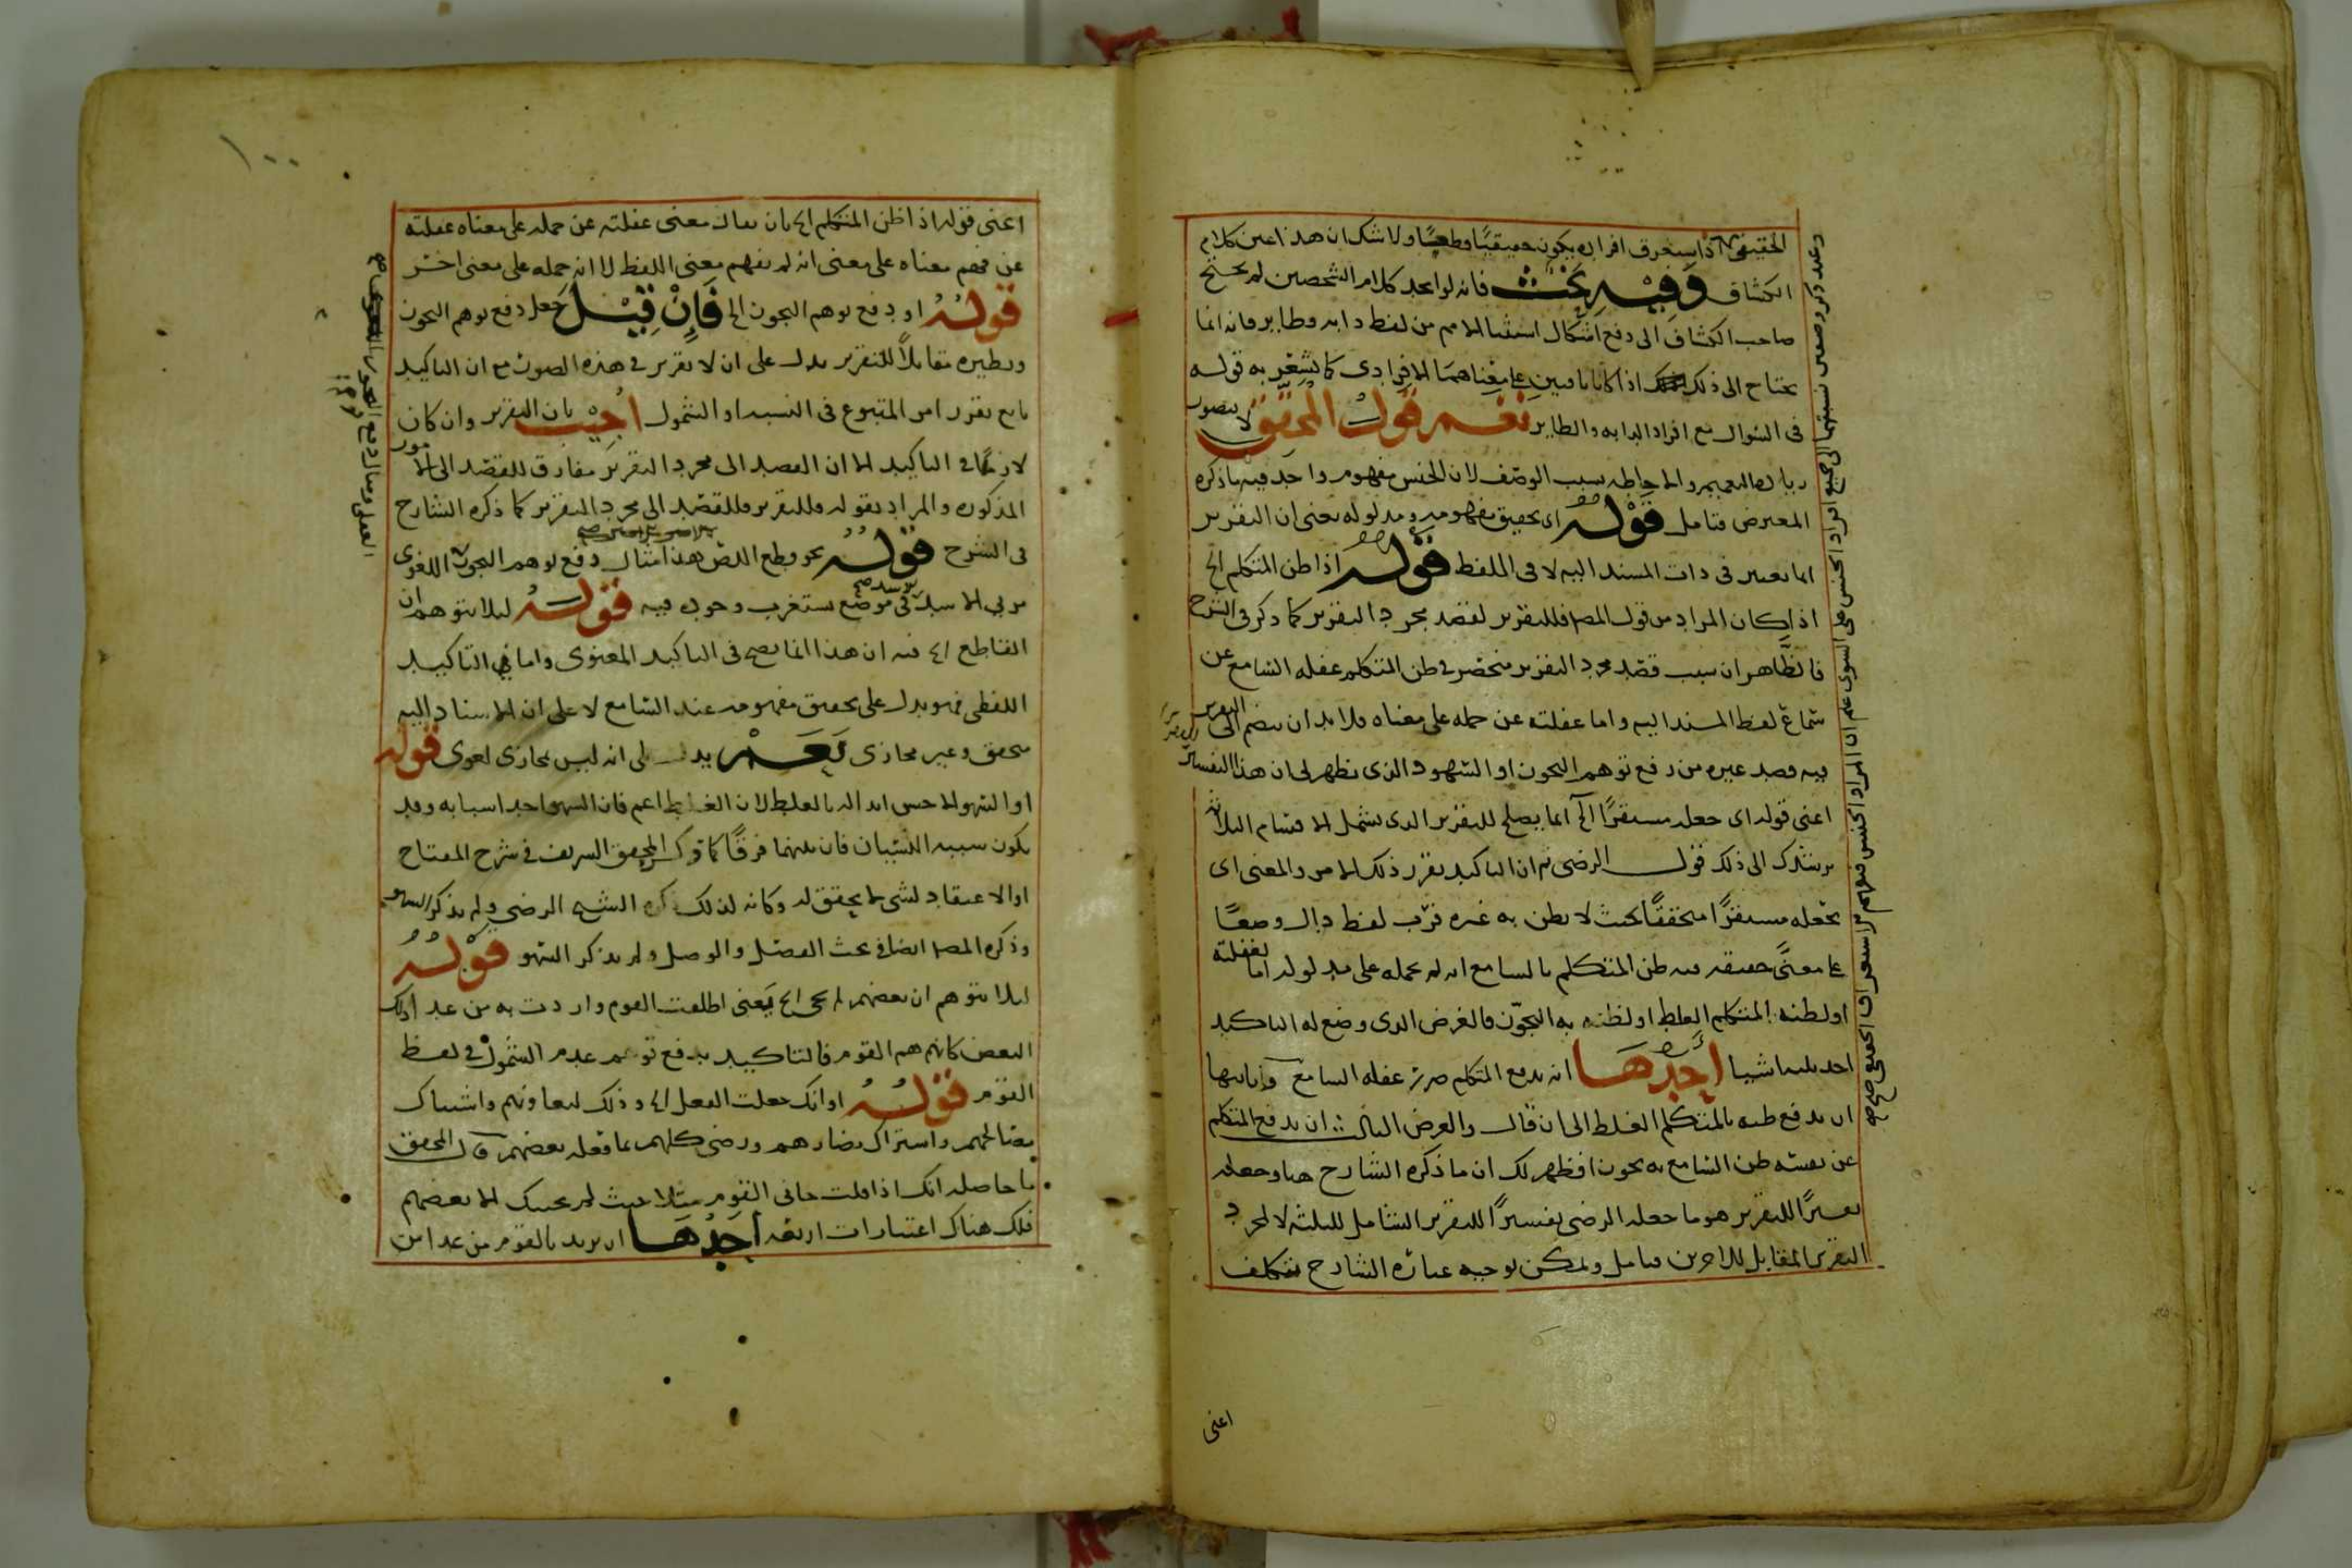 الحقيقى اذا استغرق افراده يكون حقيقيا وطعيا ولا شك ان هذا عين كلام
الكشاف وفيه بحث فانه لو اتحد كلام الشخصين لم يحتج
صاحب الكشاف الى دفع اشكال استثنا الامم من لفظ دابه وطاير فانه انما
يحتاج الى ذلك اذا كانا باقيين على معناهما الافرادى كما يشعر به قوله
فى السوال مع افراد الدابه والطاير نعم قول المحقق لا يتصور
زيادة التعميم والاحاطه بسبب الوصف لان الجنس مفهوم واحد فيه ما ذكره
المعترض فتامل قوله اى تحقيق مفهومه ومدلوله يعنى ان التقرير
انما يعتبر فى ذات المسند اليه لا فى اللفظ قوله اذا ظن المتكلم الخ
اذا كان المراد من قول المصـ فللتقرير لقصد مجرد التقرير كما ذكر فى الشرح
فالظاهر ان سبب قصد مجرد التقرير منحصر فى ظن المتكلم غفله السامع عن
سماع لفظ المسند اليه واما غفلته عن حمله على معناه فلا بد ان ينضم الى التقرير
فيه قصد غيره من دفع توهم التجوز او السهو والذى يظهر لى ان هذا التفسير
اعنى قوله اى جعله مستقرًا الخ انما يصلح للتقرير الذى يشمل الاقسام الثلاثه
يرشدك الى ذلك قول الرضى ثم ان التاكيد يقرر ذلك الامر والمعنى اى
يجعله مستقرًا متحققًا بحيث لا يظن به غيره فرب لفظ دال وضعًا
على معنًى حقيقه فيه ظن المتكلم بالسامع انه لم يحمله على مدلوله اما لغفلته
او لظنه بالمتكلم الغلط او لظنه به التجوّز فالغرض الذى وضع له التاكيد
احد ثلثه اشيا أحدها ان يدفع المتكلم ضرر غفله السامع وثانيها
ان يدفع ظنه بالمتكلم الغلط الى ان قال والغرض الثالث ان يدفع المتكلم
عن نفسه ظن السامع به تجوزا فظهر لك ان ما ذكره الشارح هنا وجعله
تفسيرًا للتقرير هو ما جعله الرضى تفسيرًا للتقرير الشامل للثلثه لا لمجرد
التقرير المقابل للاخرين فتامل ويمكن توجيه عباره الشارح بتكلف
اعنى
١٠٠
اعنى قوله اذا ظن المتكلم الخ بان يقال معنى غفلته عن حمله على معناه غفلته
عن فهم معناه على معنى انه لم يفهم معنى اللفظ لا انه حمله على معنى اخر
قوله او دفع توهم التجوز الخ فإن قيل جعل دفع توهم التجوز
ونظيره مقابلاً للتقرير يدل على ان لا تقرير فى هذه الصور مع ان التاكيد
تابع يقرر امر المتبوع فى النسبه او الشمول أجيب بان التقرير وان كان
لازمًا فى التاكيد الا ان القصد الى مجرد التقرير مفارق للقصد الى الامور
المذكوره والمراد بقوله فللتقرير فللقصد الى مجرد التقرير كما ذكره الشارح
فى الشرح قوله نحو قطع اللص هذا مثال دفع توهم التجوز اللغوى
فى موضع يستغرب وجوده فيه قوله ليلا يتوهم ان
القاطع الخ فيه ان هذا انما يصح فى التاكيد المعنوى واما فى التاكيد
اللفظى فهو يدل على تحقيق مفهومه عند السامع لا على ان الاسناد اليه
متحقق وغير مجازى نعم يدل على انه ليس بمجازى لغوى قوله
او السهو الاحسن ابداله بالغلط لان الغلط اعم فان السهو احد اسبابه وقد
يكون سببه النسيان فان بينهما فرقًا كما ذكر المحقق الشريف فى شرح المفتاح
او الاعتقاد لشى لا تحقق له وكانه لذلك ذكره الشيخ الرضى ولم يذكر السهو
وذكره المصـ ايضا فى بحث الفصل والوصل ولم يذكر السهو قوله
ليلا يتوهم ان بعضهم لم يجى الخ يعنى اطلقت القوم واردت به من عدا ذلك
البعض كانهم هم القوم فالتاكيد يدفع توهم عدم الشمول فى لفظ
القوم قوله او انك جعلت الفعل الخ وذلك لتعاونهم واشتباك
مصالحهم واشتراك مضارهم ورضى كلهم بما فعله بعضهم قال المحقق
ما حاصله انك اذا قلت جانى القوم مثلا حيث لم يجيك الا بعضهم
فلك هناك اعتبارات اربعه أحدها ان يريد بالقوم من عدا من